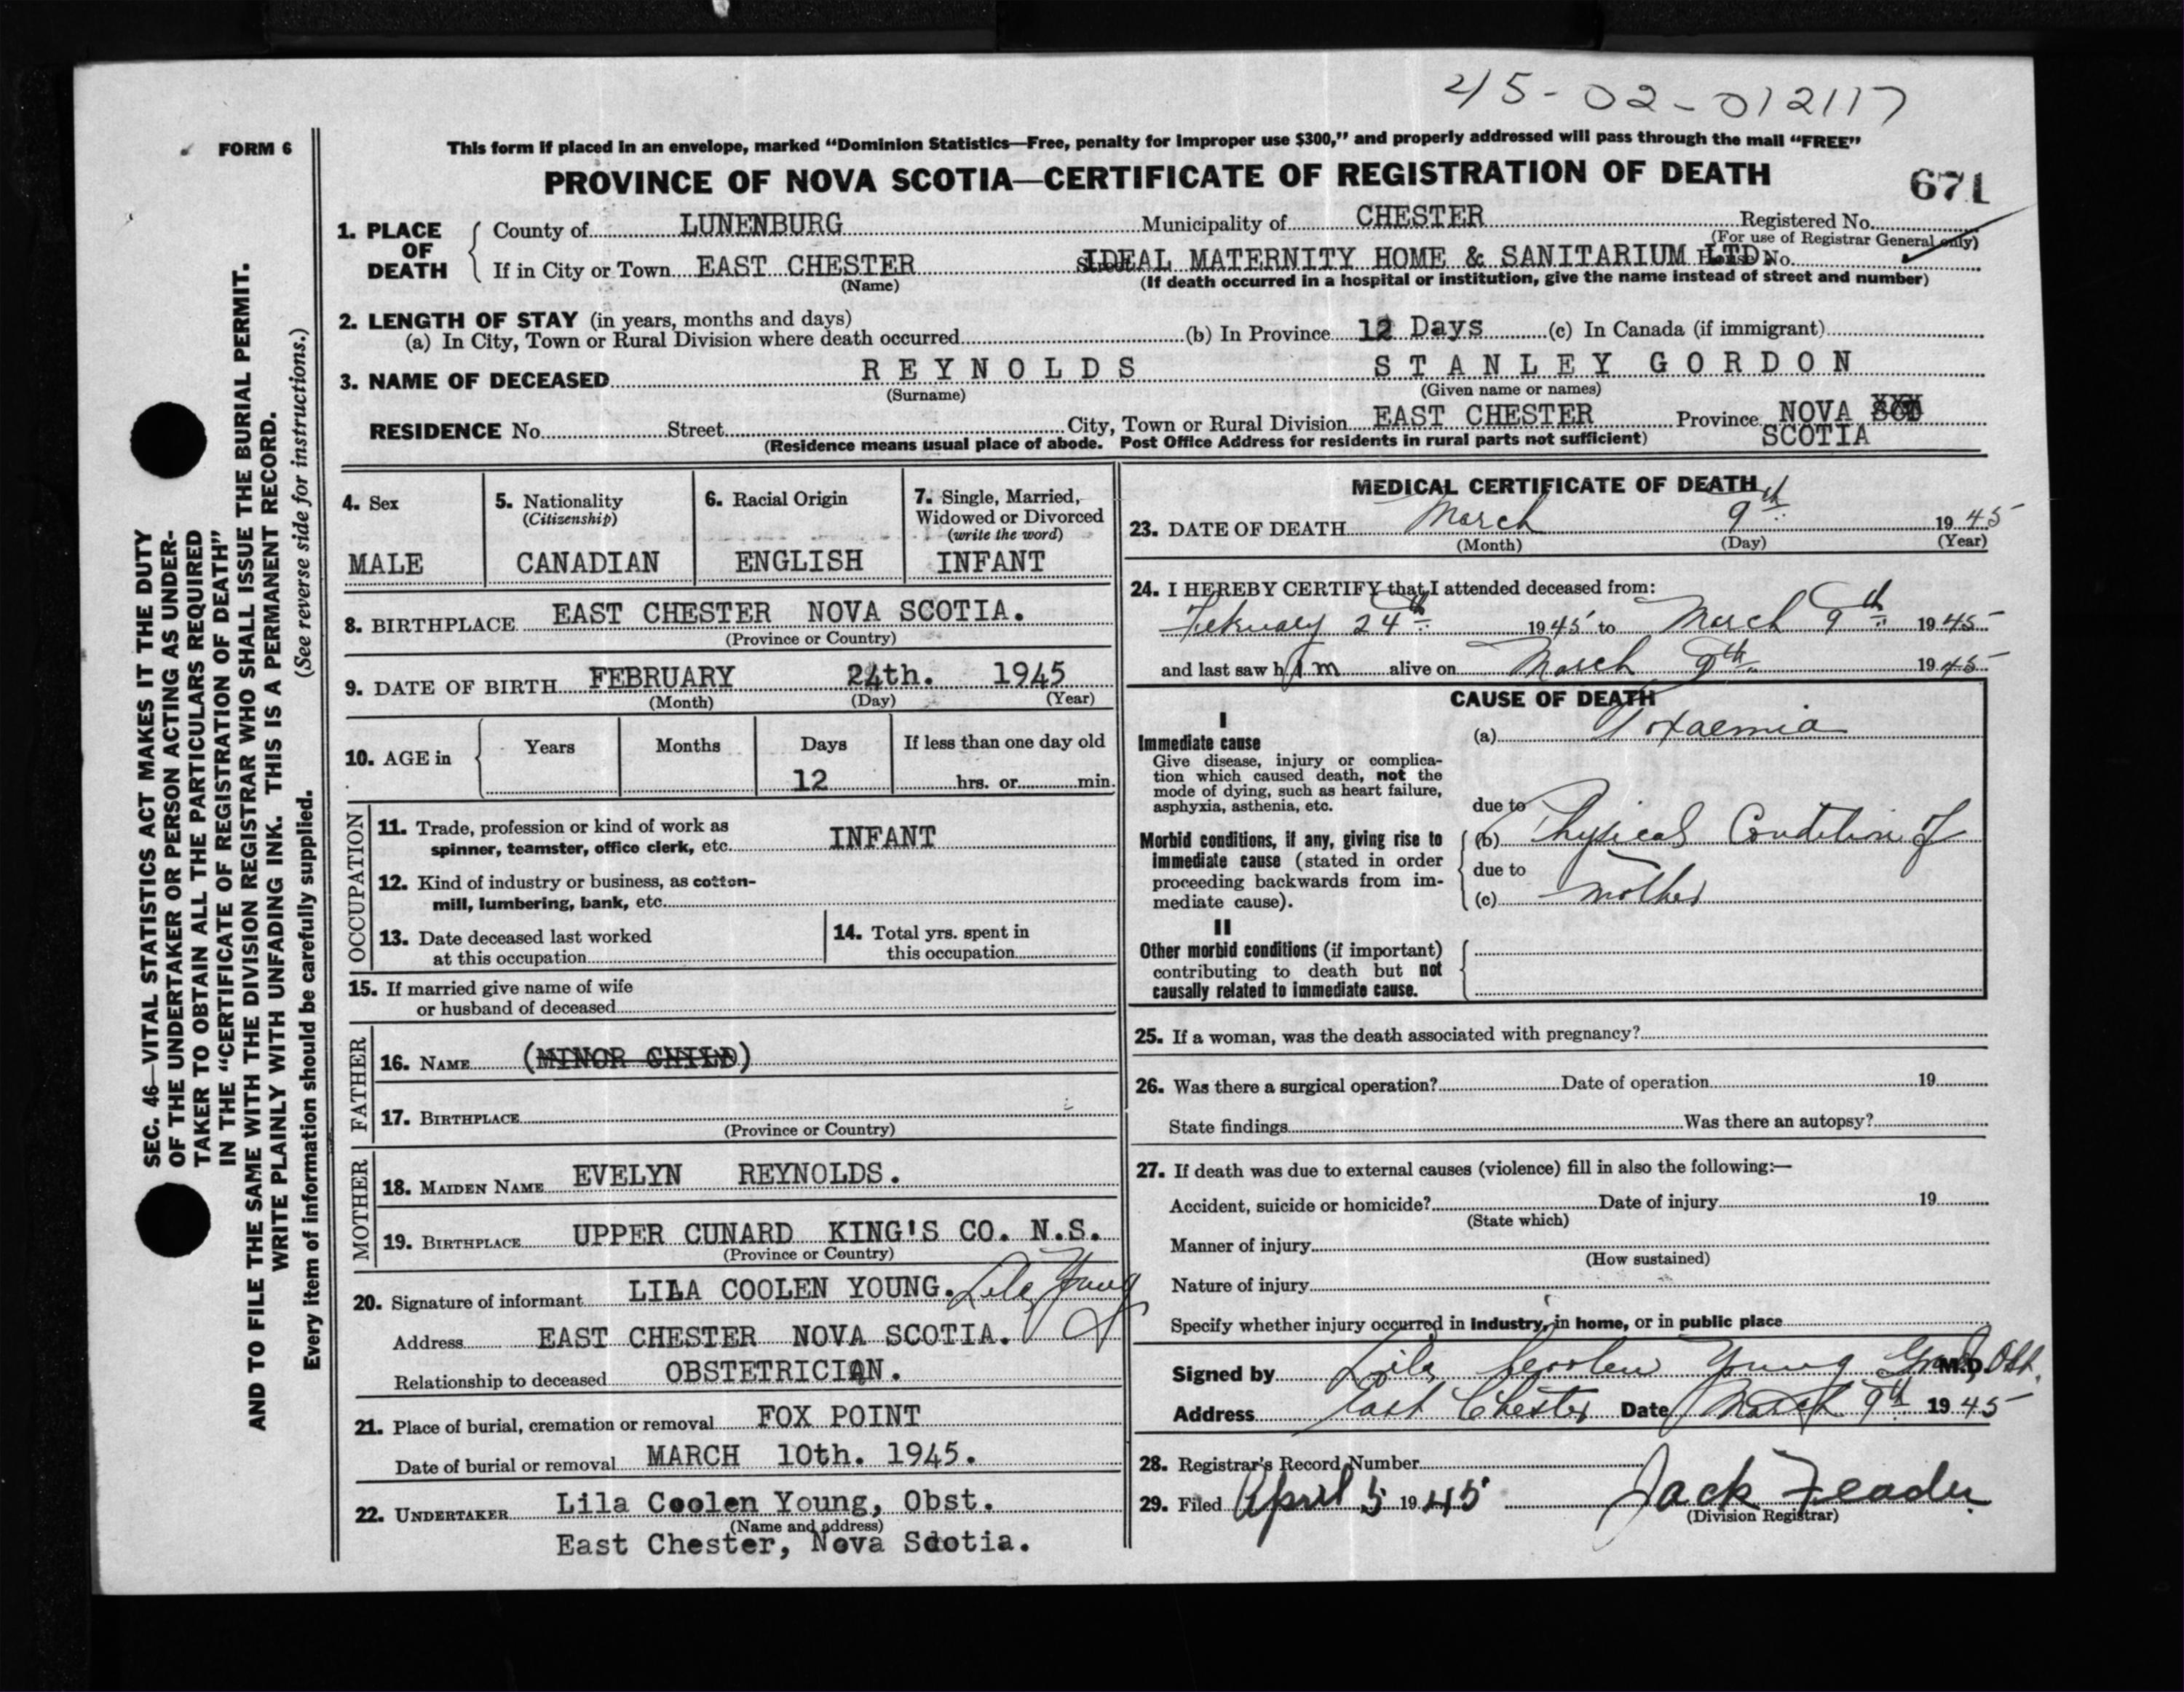 45-02-012117
FORM 6
This form if placed in an envelope, marked “Dominion Statistics—Free, penalty for improper use $300,” and properly addressed will pass through the mail “FREE”
PROVINCE OF NOVA SCOTIA—CERTIFICATE OF REGISTRATION OF DEATH
671
1. PLACE OF DEATH
County of LUNENBURG Municipality of CHESTER Registered No.
(For use of Registrar General only)
If in City or Town EAST CHESTER Street IDEAL MATERNITY HOME & SANITARIUM LTD. House No.
(Name) (If death occurred in a hospital or institution, give the name instead of street and number)
2. LENGTH OF STAY (in years, months and days)
(a) In City, Town or Rural Division where death occurred (b) In Province 12 Days (c) In Canada (if immigrant)
3. NAME OF DECEASED REYNOLDS STANLEY GORDON
(Surname) (Given name or names)
RESIDENCE No. Street City, Town or Rural Division EAST CHESTER Province NOVA SCO
SCOTIA
(Residence means usual place of abode. Post Office Address for residents in rural parts not sufficient)
4. Sex
MALE
5. Nationality
(Citizenship)
CANADIAN
6. Racial Origin
ENGLISH
7. Single, Married,
Widowed or Divorced
(write the word)
INFANT
8. BIRTHPLACE EAST CHESTER NOVA SCOTIA.
(Province or Country)
9. DATE OF BIRTH FEBRUARY 24th. 1945
(Month) (Day) (Year)
10. AGE in Years Months Days If less than one day old
12 hrs. or min.
OCCUPATION
11. Trade, profession or kind of work as
spinner, teamster, office clerk, etc. INFANT
12. Kind of industry or business, as cotton-
mill, lumbering, bank, etc.
13. Date deceased last worked
at this occupation
14. Total yrs. spent in
this occupation
15. If married give name of wife
or husband of deceased
FATHER
16. NAME (MINOR CHILD)
17. BIRTHPLACE
(Province or Country)
MOTHER
18. MAIDEN NAME EVELYN REYNOLDS.
19. BIRTHPLACE UPPER CUNARD KING'S CO. N.S.
(Province or Country)
20. Signature of informant LILA COOLEN YOUNG. Lila Young
Address EAST CHESTER NOVA SCOTIA.
Relationship to deceased OBSTETRICIAN.
21. Place of burial, cremation or removal FOX POINT
Date of burial or removal MARCH 10th. 1945.
22. UNDERTAKER Lila Coolen Young, Obst.
(Name and address)
East Chester, Nova Scotia.
MEDICAL CERTIFICATE OF DEATH
23. DATE OF DEATH March 9th 1945
(Month) (Day) (Year)
24. I HEREBY CERTIFY that I attended deceased from:
February 24th 1945 to March 9th 1945
and last saw him alive on March 9th 1945
CAUSE OF DEATH
I
Immediate cause
Give disease, injury or complica-
tion which caused death, not the
mode of dying, such as heart failure,
asphyxia, asthenia, etc.
(a) Toxaemia
due to
Morbid conditions, if any, giving rise to
immediate cause (stated in order
proceeding backwards from im-
mediate cause).
(b) Physical Condition of
due to
(c) mother
II
Other morbid conditions (if important)
contributing to death but not
causally related to immediate cause.
25. If a woman, was the death associated with pregnancy?
26. Was there a surgical operation? Date of operation 19
State findings Was there an autopsy?
27. If death was due to external causes (violence) fill in also the following:—
Accident, suicide or homicide? Date of injury 19
(State which)
Manner of injury
(How sustained)
Nature of injury
Specify whether injury occurred in industry, in home, or in public place
Signed by Lila Coolen Young Grad. M.D. Obt.
Address East Chester Date March 9th 1945
28. Registrar's Record Number
29. Filed April 5 1945 Jack
(Division Registrar)
SEC. 46—VITAL STATISTICS ACT MAKES IT THE DUTY
OF THE UNDERTAKER OR PERSON ACTING AS UNDER-
TAKER TO OBTAIN ALL THE PARTICULARS REQUIRED
IN THE “CERTIFICATE OF REGISTRATION OF DEATH”
AND TO FILE THE SAME WITH THE DIVISION REGISTRAR WHO SHALL ISSUE THE BURIAL PERMIT.
WRITE PLAINLY WITH UNFADING INK. THIS IS A PERMANENT RECORD.
Every item of information should be carefully supplied. (See reverse side for instructions.)